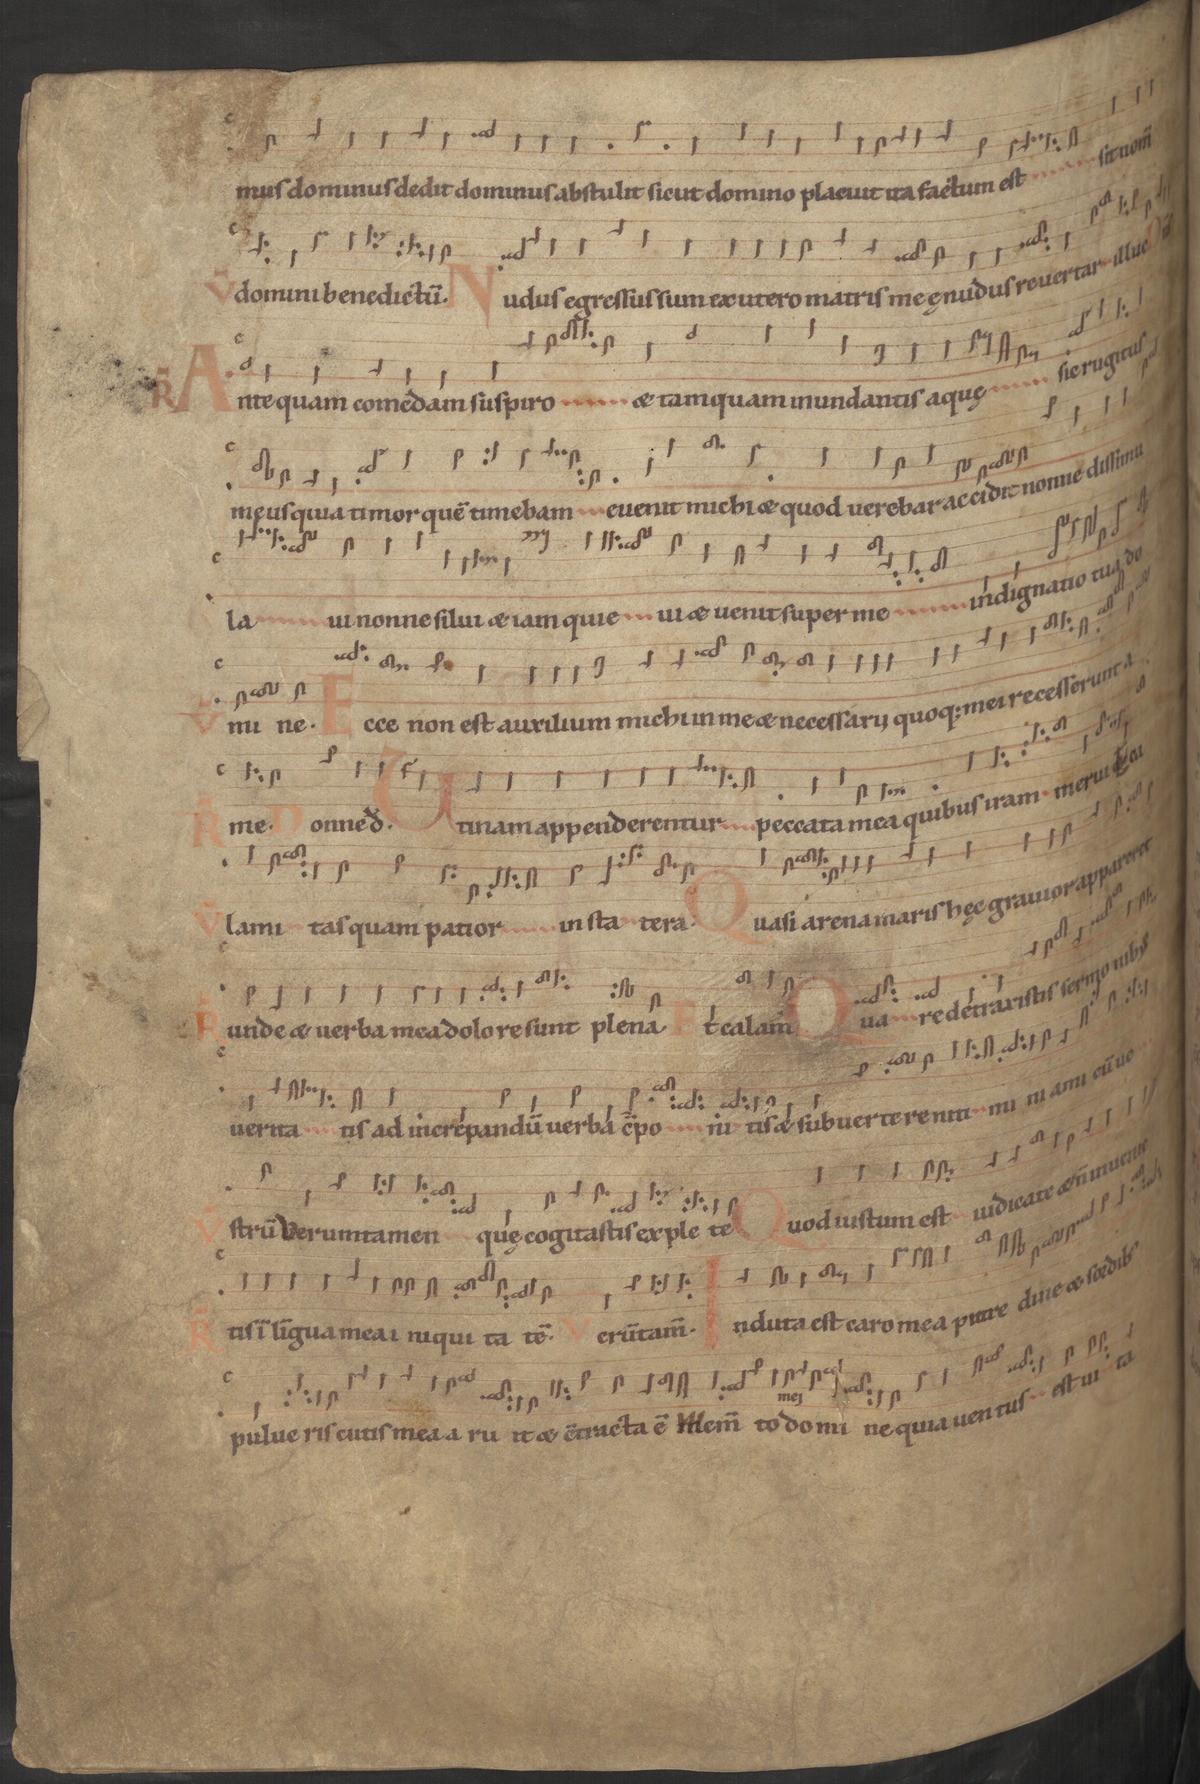 mus dominus dedit dominus abstulit sicut domino placuit ita factum est sit nom̄
V̄ domini benedictū. Nudus egressus sum ex utero matris meę nudus revertar illuc
R̄ Ante quam comedam suspiro & tamquam inundantis aquę sic rugitus
meus quia timor quē timebam evenit michi & quod verebar accidit nonne dissimu
la vi nonne silui & iam quie vi & venit super me indignatio tua do
V̄ mi ne. Ecce non est auxilium michi in me & necessarij quoq; mei recesserunt a
R̄ me. Nonne d. Utinam appenderentur peccata mea quibus iram merui & ca
V̄ lami tas quam patior in sta tera. Quasi arena maris hęc gravior appareret
R̄ unde & verba mea dolore sunt plena Et calam̄ Qua re detraxistis sermonibus
verita tis ad increpandū verba cōpo ni tis & subvertere niti mi ni ami cū ve
V̄ strū Verumtamen quę cogitastis exple te Quod iustum est iudicate & n̄ invenie
R̄ tis ī lingua mea i niqui ta tē. Verūtam̄. Induta est caro mea putre dine & sordib;
pulve ris cutis mea a ru it & cōtracta ē Mem̄ to mei do mi ne quia ventus est vi ta